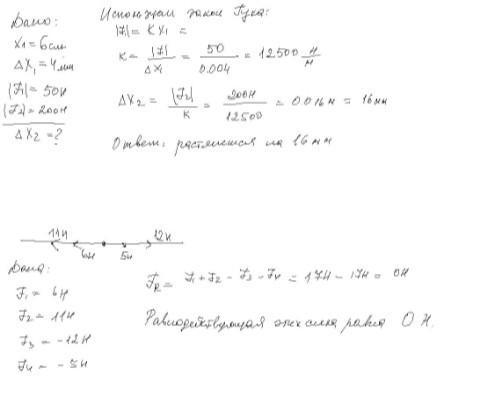 Дано:
x1 = 6см
Δx1 = 4мм
|F1| = 50Н
|F2| = 200Н
Δx2 = ?
Используем закон Гука:
|F| = K x1 =
K = |F| / Δx1 = 50 / 0.004 = 12500 Н/м
Δx2 = |F2| / K = 200Н / 12500 = 0016м = 16мм
Ответ: растянется на 16 мм
11Н 12Н
6Н 5Н
Дано:
F1 = 6Н
F2 = 11Н
F3 = -12Н
F4 = -5Н
FR = F1 + F2 - F3 - F4 = 17Н - 17Н = 0Н
Равнодействующая этих сил равна 0 Н.